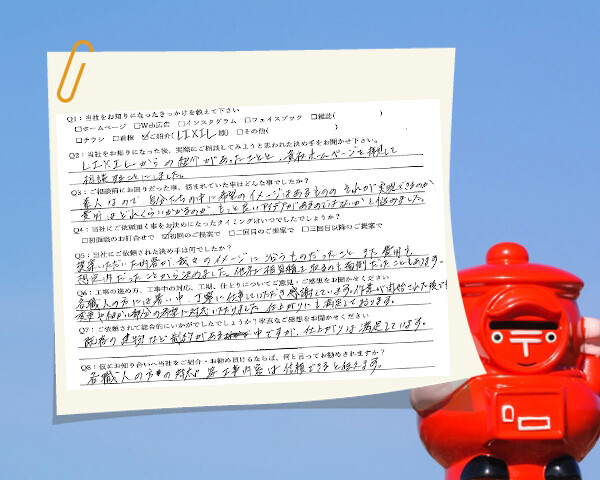 Q1：当社をお知りになったきっかけを教えて下さい
□ホームページ □Web広告 □インスタグラム □フェイスブック □雑誌( )
□チラシ □看板 ☑ご紹介(LIXIL 様) □その他( )
Q2：当社をお知りになった後、実際にご相談してみようと思われた決め手をお聞かせ下さい。
LIXILからの紹介があったことと、貴社ホームページを拝見して
相談することにしました。
Q3：ご相談前にお困りだった事、悩まれていた事はどんな事でしたか？
素人なので自分たちの中に希望のイメージはあるものの それが実現できるのか
費用はどれくらいかかるのか、もっと良いアイデアがあるのではないかと悩みました。
Q4：当社にご依頼頂く事をお決めになったタイミングはいつでしたでしょうか？
□初回頃のお打合せで ☑初回のご提案で □二回目のご提案で □三回目以降のご提案で
Q5：当社にご依頼された決め手は何でしたか？
提案いただいた内容が、我々のイメージに沿うものだったこと また費用も
想定内だったことから決めました。他社に相見積を取るのも面倒だったこともあります。
Q6：工事の進め方、工事中の対応、工期、仕上りについてご意見・ご感想をお聞かせください
各職人の方には暑い中、丁寧に仕事していただき感謝しています。作業が開始された後でも
変更や細かい部分の希望に対応いただけました。仕上がりにも満足しております。
Q7：ご依頼されて総合的にいかがでしたでしょうか？率直なご感想をお聞かせください
既存の建物など制約がある中ですが、仕上がりは満足しています。
Q8：仮にお知り合いへ当社をご紹介・お勧め頂けるならば、何と言ってお勧めされますか？
各職人の方の対応 工事内容は信頼できると伝えます。